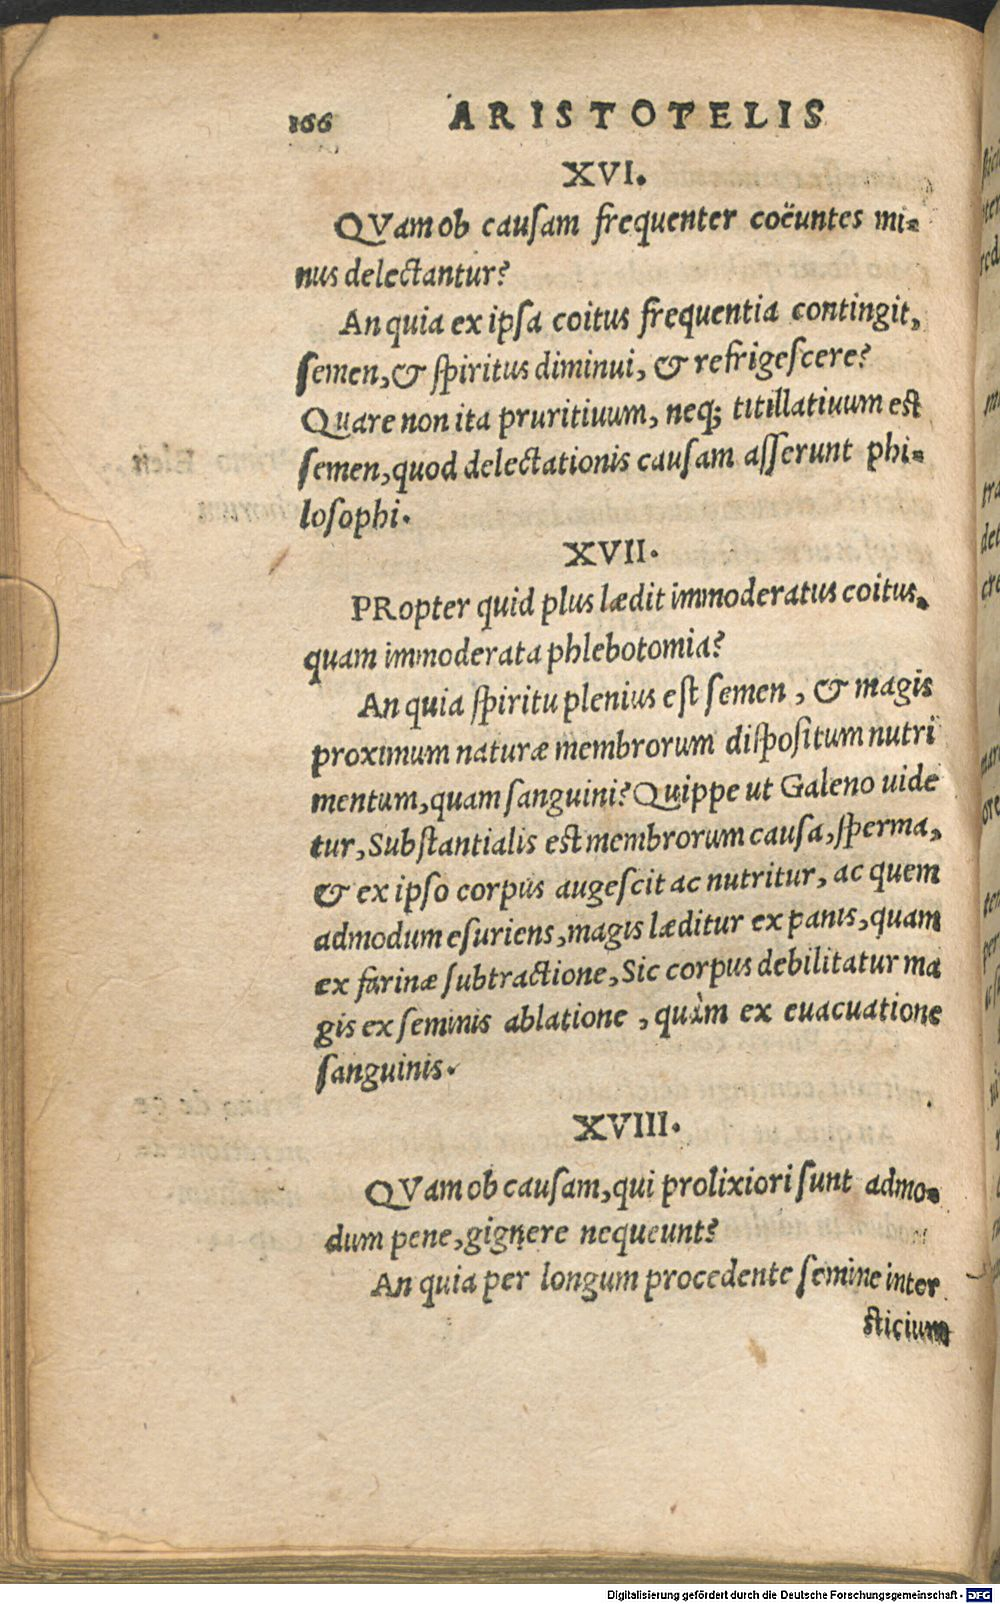 166 ARISTOTELIS
XVI.
QVam ob causam frequenter coëuntes mi=
nus delectantur?
An quia ex ipsa coitus frequentia contingit,
semen, & spiritus diminui, & refrigescere?
Quare non ita pruritiuum, neq; titillatiuum est
semen, quod delectationis causam asserunt phi=
losophi.
XVII.
PRopter quid plus lædit immoderatus coitus,
quam immoderata phlebotomia?
An quia spiritu plenius est semen, & magis
proximum naturæ membrorum dispositum nutri
mentum, quam sanguini? Quippe ut Galeno uide
tur, Substantialis est membrorum causa, sperma,
& ex ipso corpus augescit ac nutritur, ac quem
admodum esuriens, magis læditur ex panis, quam
ex farinæ subtractione, Sic corpus debilitatur ma
gis ex seminis ablatione, quàm ex euacuatione
sanguinis.
XVIII.
QVam ob causam, qui prolixiori sunt admo=
dum pene, gignere nequeunt?
An quia per longum procedente semine inter
sticium
Digitalisierung gefördert durch die Deutsche Forschungsgemeinschaft - DFG